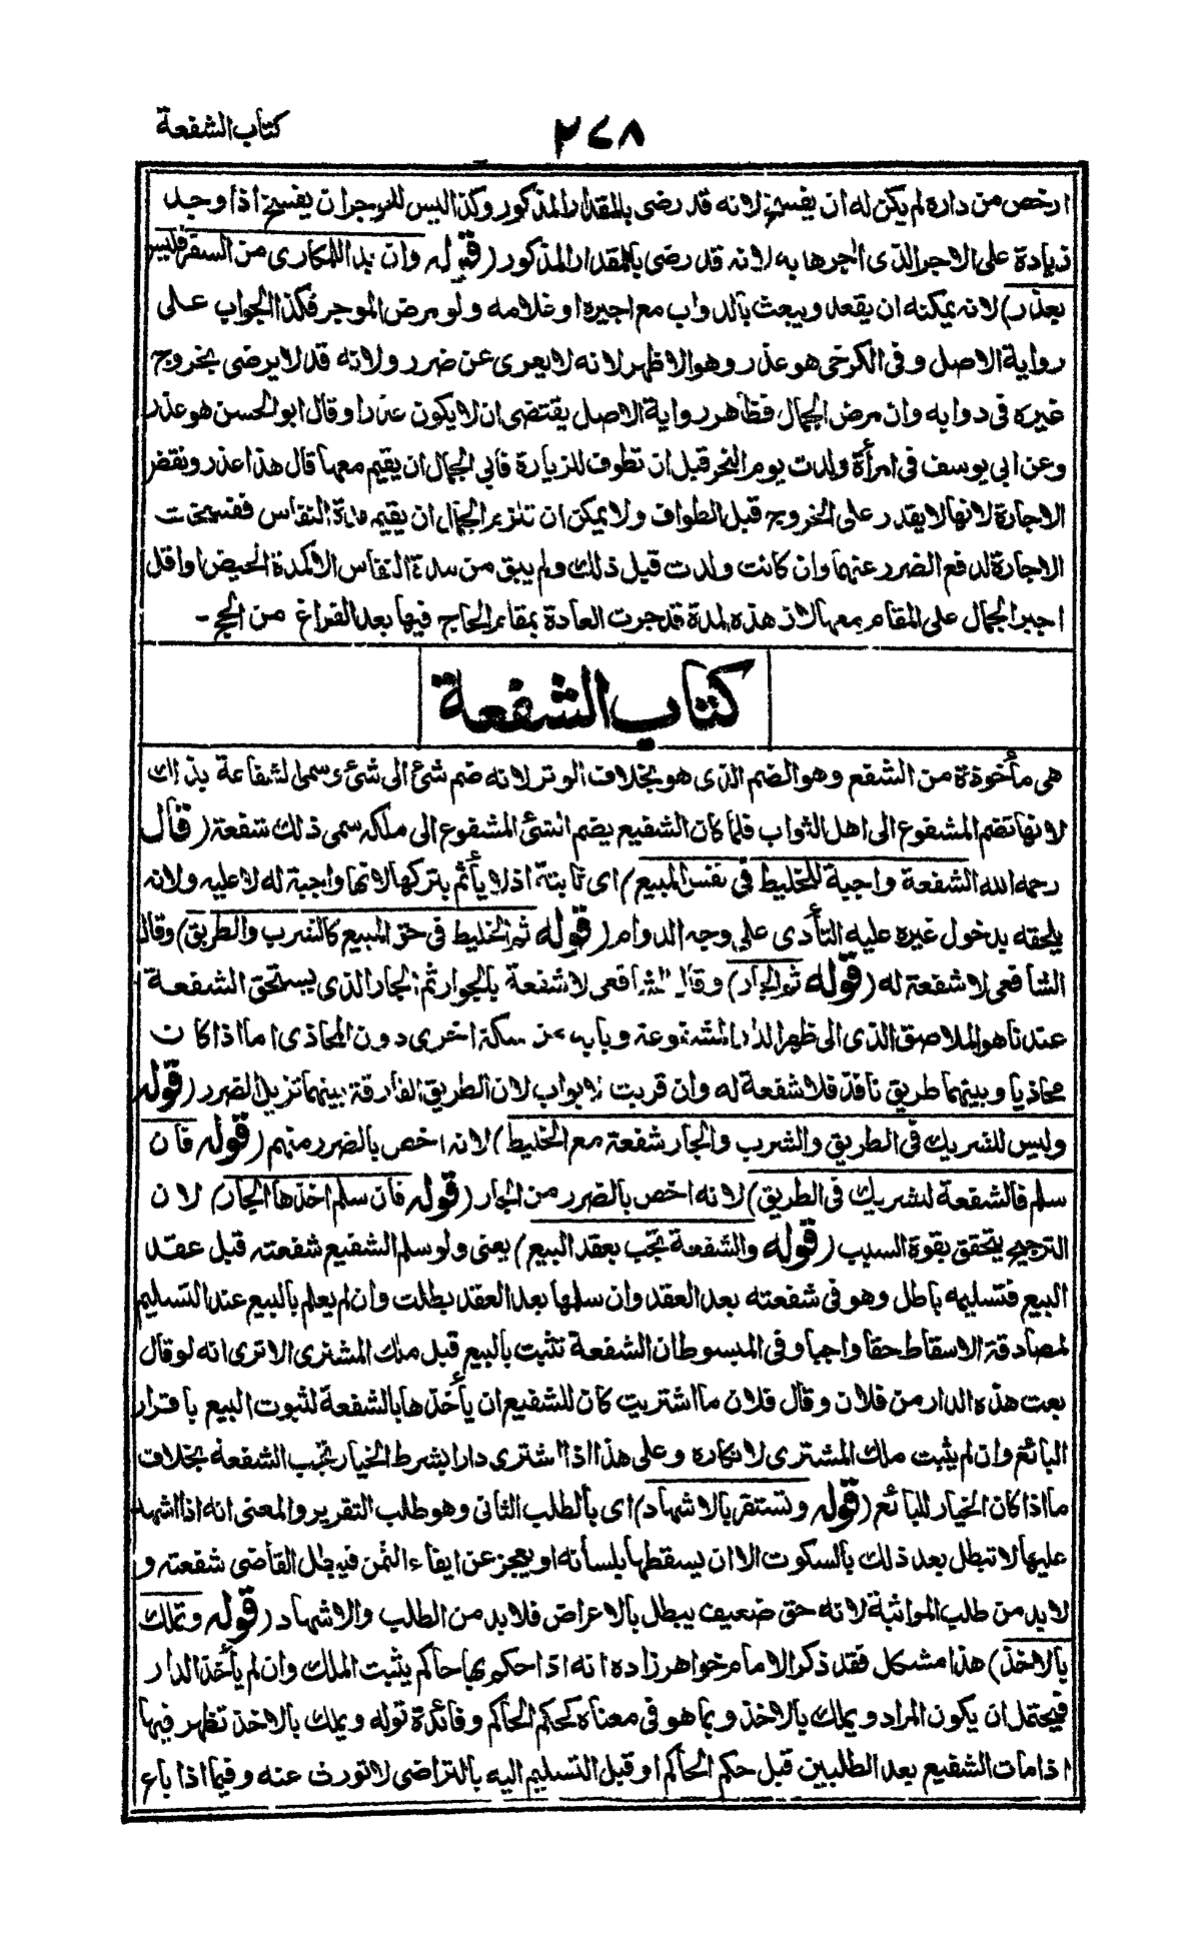 كتاب الشفعة
٢٧٨
ارخص من داره لم يكن له ان يفسخ لانه قد رضى بالمقدار المذكور وكذا ليس للموجر ان يفسخ اذا وجد
زيادة على الاجر الذى آجرها به لانه قد رضى بالمقدار المذكور (قوله وان بدا للمكارى من السفر فليس
بعذر) لانه يمكنه ان يقعد ويبعث بالدواب مع اجيره او غلامه ولو مرض الموجر فكذا الجواب على
رواية الاصل وفى الكرخى هو عذر وهو الاظهر لانه لا يعرى عن ضرر ولانه قد لا يرضى بخروج
غيره فى دوابه وان مرض الجمال فظاهر رواية الاصل يقتضى ان لا يكون عذرا وقال ابو الحسن هو عذر
وعن ابى يوسف فى امرأة ولدت يوم النحر قبل ان تطوف للزيارة فابى الجمال ان يقيم معها قال هذا عذر ونقض
الاجارة لانها لا يقدر على الخروج قبل الطواف ولا يمكن ان تلزم الجمال ان يقيم مدة النفاس ففسخت
الاجارة لدفع الضرر عنهما وان كانت ولدت قبل ذلك ولم يبق من مدة النفاس الا كمدة الحيض او اقل
اجبر الجمال على المقام معها لان هذه المدة قد جرت العادة بمقام الحاج فيها بعد الفراغ من الحج -
كتاب الشفعة
هى مأخوذة من الشفع وهو الضم الذى هو بخلاف الوتر لانه ضم شئ الى شئ وسمى الشفاعة بذلك
لانها تضم المشفوع الى اهل الثواب فلما كان الشفيع يضم الشئ المشفوع الى ملكه سمى ذلك شفعة (قال
رحمه الله الشفعة واجبة للخليط فى نفس المبيع) اى ثابتة اذ لا يأثم بتركها لانها واجبة له لا عليه ولانه
يلحقه بدخول غيره عليه التأدى على وجه الدوام (قوله ثم الخليط فى حق المبيع كالشرب والطريق) وقال
الشافعى لا شفعة له (قوله ثم الجار) وقال الشافعى لا شفعة بالجوار ثم الجار الذى يستحق الشفعة
عندنا هو الملاصق الذى الى ظهر الدار المشفوعة وبابه من سكة اخرى دون المحاذى اما اذا كان
محاذيا وبينهما طريق نافذ فلا شفعة له وان قربت الابواب لان الطريق الفارقة بينهما تزيل الضرر (قوله
وليس للشريك فى الطريق والشرب والجار شفعة مع الخليط) لانه اخص بالضرر منهم (قوله فان
سلم فالشفعة للشريك فى الطريق) لانه اخص بالضرر من الجار (قوله فان سلم اخذها الجار) لان
الترجيح يتحقق بقوة السبب (قوله والشفعة تجب بعقد البيع) يعنى ولو سلم الشفيع شفعته قبل عقد
البيع فتسليمه باطل وهو فى شفعته بعد العقد وان سلمها بعد العقد بطلت وان لم يعلم بالبيع عند التسليم
لمصادفة الاسقاط حقا واجبا وفى المبسوط ان الشفعة تثبت بالبيع قبل ملك المشترى الا ترى انه لو قال
بعت هذه الدار من فلان وقال فلان ما اشتريت كان للشفيع ان يأخذها بالشفعة لثبوت البيع باقرار
البائع وان لم يثبت ملك المشترى لانكاره وعلى هذا اذا اشترى دارا بشرط الخيار تجب الشفعة بخلاف
ما اذا كان الخيار للبائع (قوله وتستقر بالاشهاد) اى بالطلب الثانى وهو طلب التقرير والمعنى انه اذا اشهد
عليها لا تبطل بعد ذلك بالسكوت الا ان يسقطها بلسانه او يعجز عن ايفاء الثمن فيبطل القاضى شفعته و
لا بد من طلب المواثبة لانه حق ضعيف يبطل بالاعراض فلا بد من الطلب والاشهاد (قوله وتملك
بالاخذ) هذا مشكل فقد ذكر الامام خواهر زاده انه اذا حكم بها حاكم يثبت الملك وان لم يأخذ الدار
فيحتمل ان يكون المراد ويملك بالاخذ وبما هو فى معناه كحكم الحاكم وفائدة قوله ويملك بالاخذ تظهر فيها
اذا مات الشفيع بعد الطلبين قبل حكم الحاكم او قبل التسليم اليه بالتراضى لا تورث عنه وفيما اذا باع